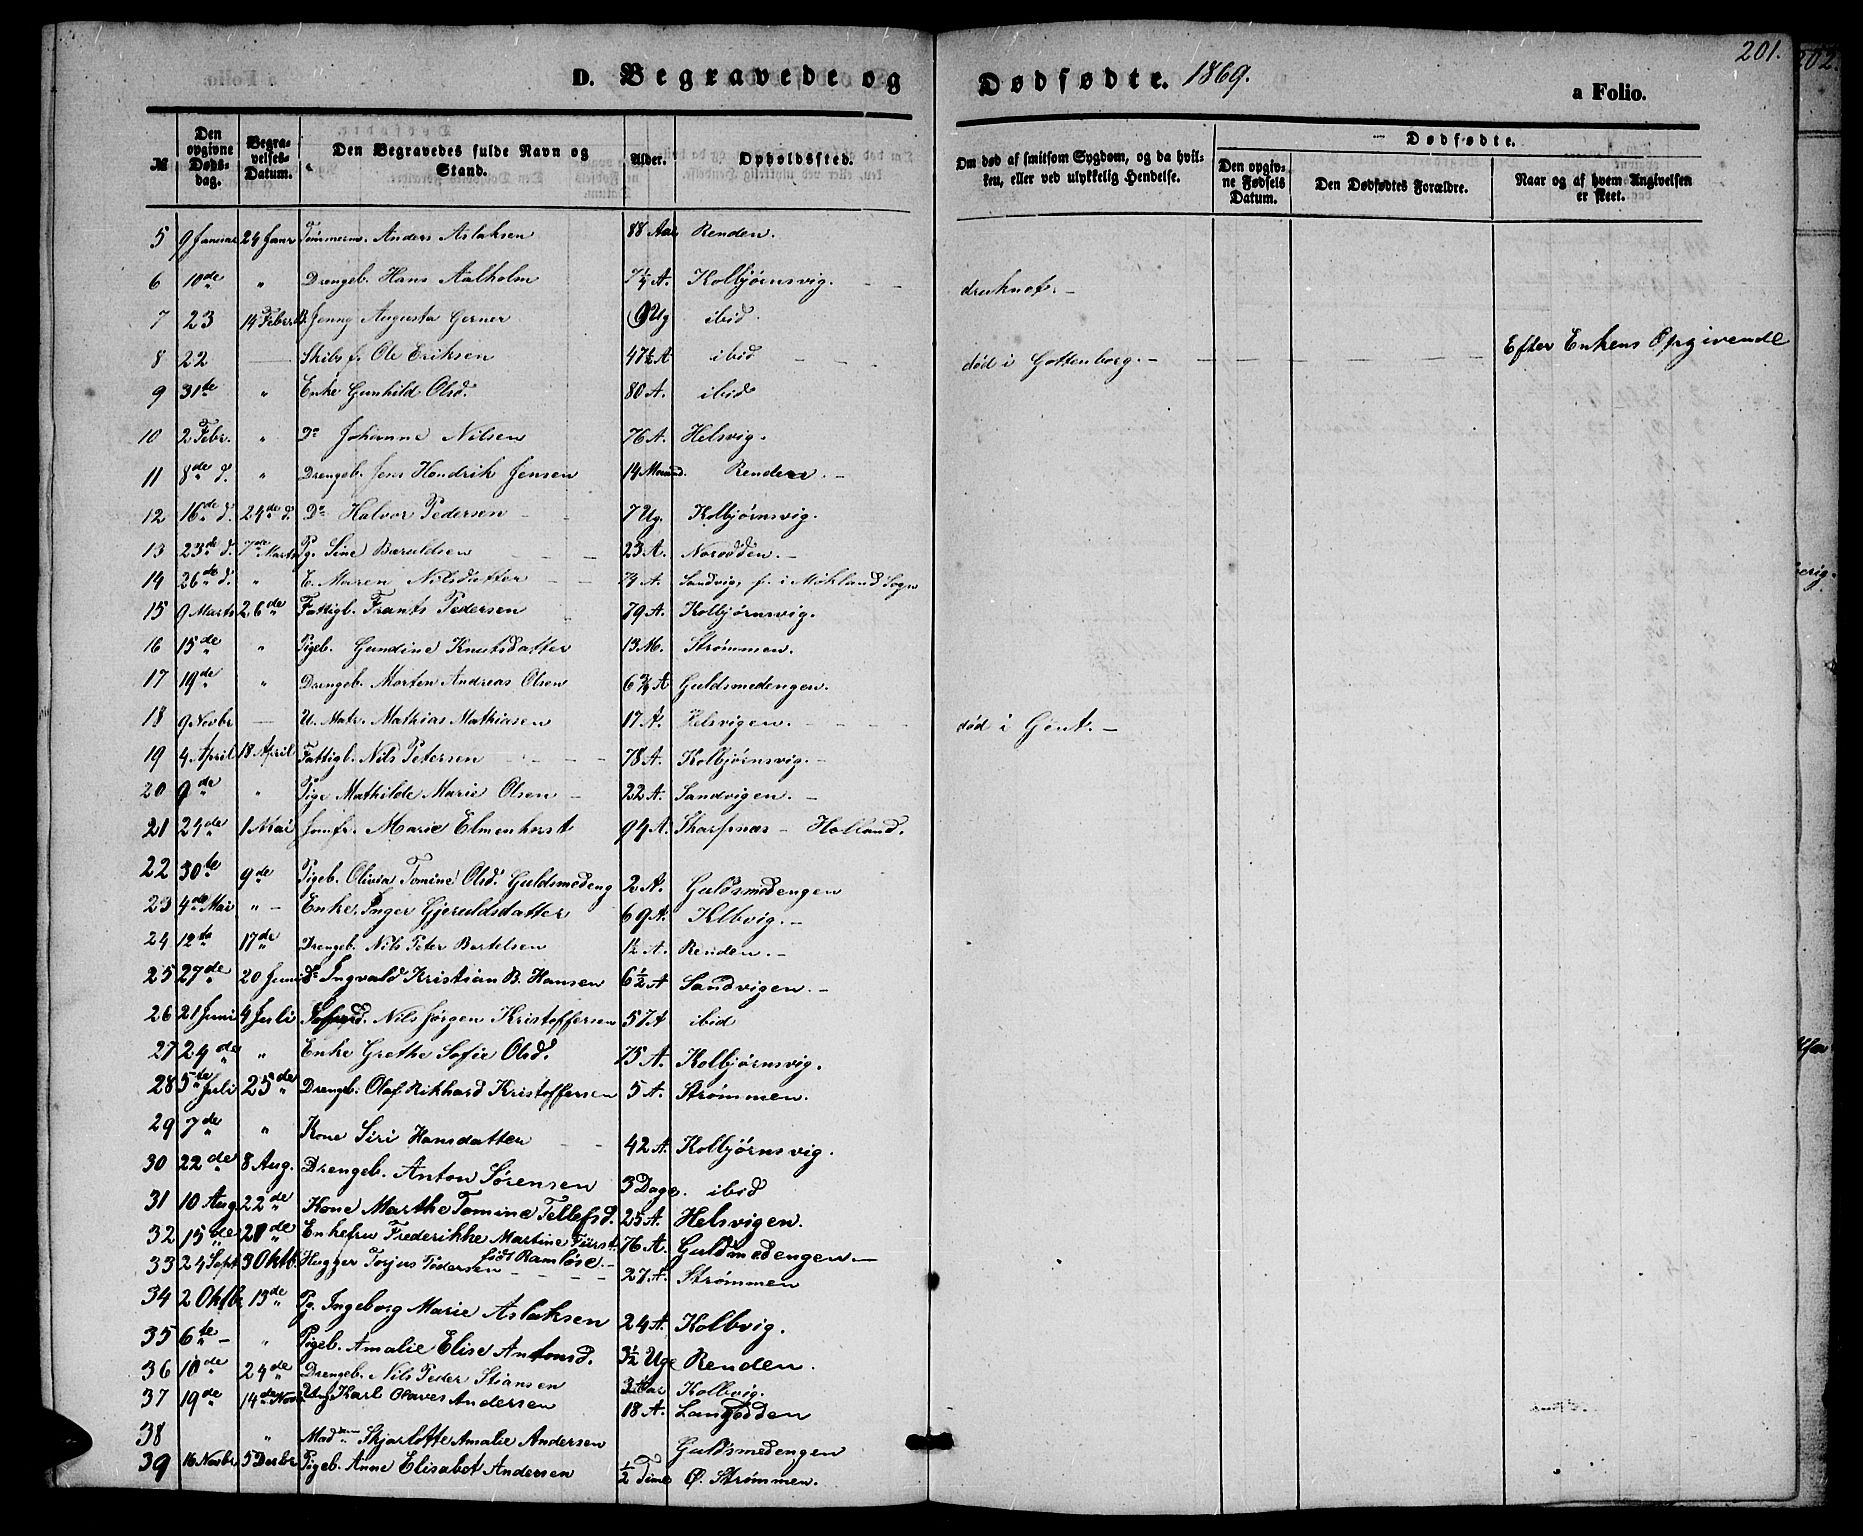 201.
202.
D. Begravede og Dødfødte. 1869.
a Folio.
№ | Den opgivne Døds-dag. | Begra-velses-Datum. | Den Begravedes fulde Navn og Stand. | Alder. | Opholdssted. | Om død af smitsom Sygdom, og da hvil-ken, eller ved ulykkelig Hendelse. | Dødfødte. | Den opgiv-ne Fødsels Datum. | Den Dødfødtes Forældre. | Naar og af hvem Angivelsen er skeet.
5 9 Januar 24 Janr Tømmerm. Anders Aslaksen 88 Aar Renden.
6 10de " Drengeb. Hans Aalholm 7¼ A. Kolbjørnsvig. druknet. -
7 23 14 Febr. Jenny Augusta Gerner 9 Ug ibid.
8 22 — Skibsf. Ole Eriksen 47½ A ibid død i Gottenborg. - Efter Enkens Opgivende
9 31te " Enke Gunhild Olsd. 80 A. ibid
10 2 Febr. " Do Johanne Nilsen 76 A. Helsvig.
11 8de d. " Drengeb. Jens Hendrik Jensen 14 Maaned. Renden. -
12 16de d. 24de d. Do Halvor Pedersen 7 Ug. Kolbjørnsvig.
13 23de d. 7de Marts Pg. Sine Baruldsen 23 A. Norodden. -
14 26de d. " E. Maren Nilsdatter 74 A. Sandvig, f. i Mohland Sogn
15 9 Marts 26de Fattigl. Frants Pedersen 79 A. Kolbjørnsvig.
16 15de " Pigeb. Gundine Knutsdatter 13 M. Strømmen.
17 19de " Drengeb. Morten Andreas Olsen 6¾ A Guldsmedengen.
18 9 Novbr — U. Matr. Mathias Mathiasen 17 A. Helsvigen. død i Gent. -
19 4 April 18 April Fattigl. Nils Petersen 78 A. Kolbjørnsvig. -
20 9de " Pige Mathilde Marie Olsen 22 A. Sandvigen. -
21 24de 1 Mai Jomfr. Marie Elmenhorst 94 A. Skarpnæs - Holland.
22 30te 9de Pigeb. Olivia Tomine Olsd. Guldsmedeng 2 A. Guldsmedengen
23 4de Mai " - Enke Inger Gjeruldsdatter 69 A. Kolbvig. -
24 12te 17de Drengeb. Nils Peter Bertelsen 1½ A. Renden. -
25 27de 20 Juni Do Ingvald Kristian B. Hansen 6½ A Sandvigen. -
26 21 Juni 4 Juli Nils Jørgen Kristoffersen 57 A ibid
27 29de " Enke Grethe Sofie Olsd. 75 A. Kolbjørnsvig.
28 5te Juli 25de Drengeb. Olaf Rikhard Kristoffersen 5 A. Strømmen.
29 7de " Kone Siri Hansdatter 42 A. Kolbjørnsvig.
30 22de 8 Aug. Drengeb. Anton Sørensen 3 Dage. ibid
31 10 Aug 22de Kone Marthe Tomine Tellefsd. 25 A. Helsvigen.
32 15de 28de Enkefru Frederikke Martine Fürst 76 A. Guldsmedengen -
født Ramløse. -
33 24 Sept 3 Oktb. Hugger Torjus Pedersen 27 A. Strømmen
34 2 Oktb 13de Pg. Ingeborg Marie Aslaksen 24 A. Kolbvig.
35 6te - " Pigeb. Amalie Elise Antonsd. 3½ Uge Renden.
36 10de 24de Drengeb. Nils Peder Stiansen 3 Aar Kolbvig.
37 19de 14de Nov. Karl Olaves Andersen 18 A. Langodden
38 " Madam Skjarlotte Amalie Andersen Guldsmedengen
39 16 Novbr 5 Decbr Pigeb. Anne Elisabet Andersen ½ Time Ø. Strømmen.